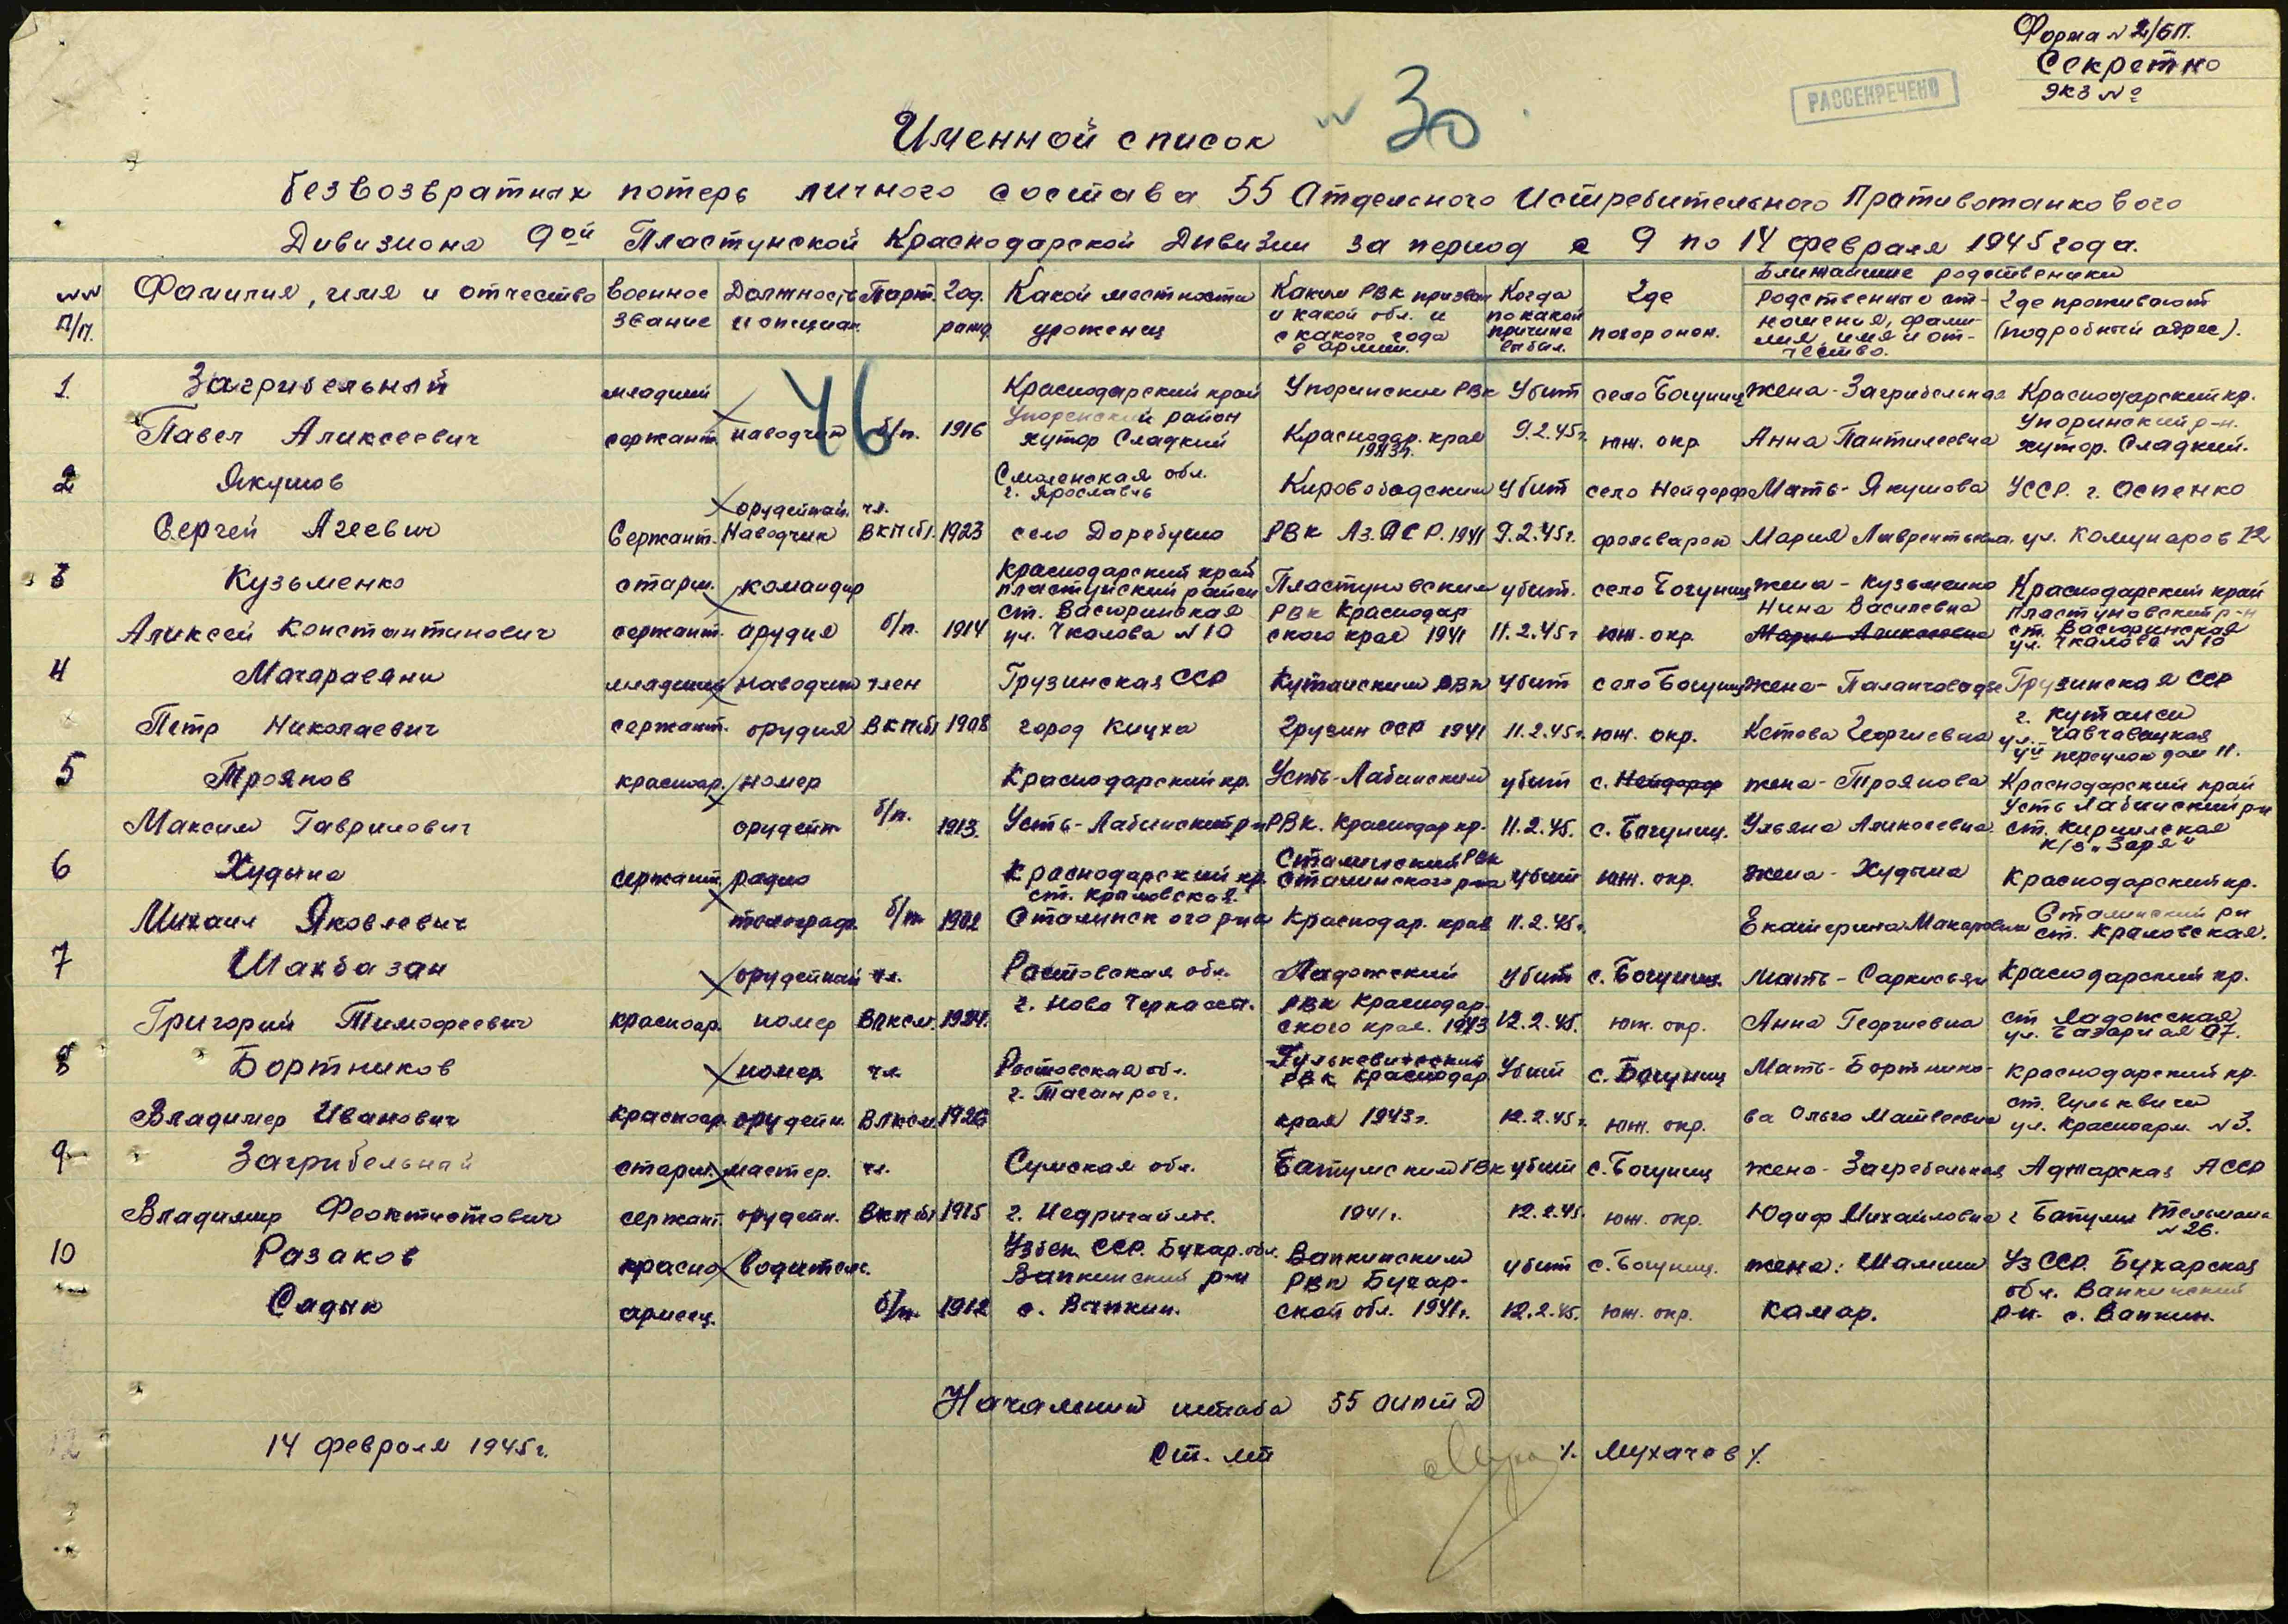 Форма № 2/БП.
Секретно
экз №
РАССЕКРЕЧЕНО
№ 30
Именной список
безвозвратных потерь личного состава 55 Отдельного Истребительного Противотанкового
Дивизиона 9ой Пластунской Краснодарской Дивизии за период с 9 по 14 февраля 1945 года.
№№ п/п. Фамилия, имя и отчество военное звание Должность и специал. Парт. Год. рожд. Какой местности уроженец Каким РВК призван и какой обл. и с какого года в армии. Когда по какой причине выбыл. Где похоронен. Ближайшие родственики
Родственные отношения, фамилия, имя и отчество. Где проживают (подробный адрес).
46
1. Загрибельный младший Краснодарский край Упоринским РВК Убит село Богуниц жена - Загрибельная Краснодарский кр.
Упоренский район Упоринский р-н.
Павел Аликсеевич сержант. наводчик б/п. 1916 хутор Сладкий Краснодар. края 1943г. 9.2.45г. юж. окр. Анна Пантилеевна хутор. Сладкий.
2 Якушов Смоленская обл. г. Ярославль Кировободским убит село Нейдорф Мать - Якушова УССР. г. Оспенко
орудейный. чл.
Сергей Агеевич Сержант. Наводчик ВКП(б). 1923 село Доребужо РВК Аз. ССР. 1941 9.2.45г. фольварок Мария Лаврентьевна. ул. Комунаров 72
3 Кузьменко старш. командир Краснодарский край Пластунский район Пластуновским убит. село Богуниц жена - Кузьменко Краснодарский край
ст. Васюринская РВК Краснодар Нина Василевна Пластуновский р-н
Аликсей Константинович сержант. орудия б/п. 1914 ул. Чкалова № 10 ского края 1941 11.2.45г юж. окр. Мария Аликсеевна ст. Васюринская ул. Чкалова № 10
4 Мачарасани младший наводчик член Грузинская ССР Кутаиским РВК убит село Богуниц жена - Грузинская ССР
Петр Николаевич сержант. орудия ВКП(б) 1908 город Кицха Грузин ССР 1941 11.2.45г. юж. окр. Кетева Георгиевна г. Кутаиси ул. Чавчавадская 4й переулок дом 11.
5 Троянов красноар. номер Краснодарский кр. Усть-Лабинским убит с. Нейдорф жена - Троянова Краснодарский край
Максим Гаврилович орудейн. б/п. 1913. Усть-Лабинский р-н РВК. Краснодар кр. 11.2.45. с. Богуниц. Ульяна Аликсеевна Усть Лабинский р-н ст. Кирпилская к/з "Заря"
6 Худына сержант. радио Краснодарский кр. Сталинский РВК Сталинского р-на убит юж. окр. жена - Худына Краснодарский кр.
ст. Крыловская. Сталинский р-н
Михаил Яковлевич телеграф. б/п. 1902 Сталинского р-на Краснодар. края 11.2.45г. Екатерина Макаровна ст. Крыловская.
7 Шахбазан орудейный чл. Ростовская обл. Ладожский убит с. Богуниц. Мать - Саркисьян Краснодарский кр.
г. Ново Черкасск. РВК Краснодар.
Григорий Тимофеевич красноар. номер ВЛКСМ. 1924. ского края. 1943 12.2.45. юж. окр. Анна Георгиевна ст Ладожская ул. Базарная 97.
8 Бортников номер чл Ростовская обл. Гулькевический РВК Краснодар. Убит с. Богуниц Мать - Бортнико- Краснодарский кр.
г. Таганрог. ст. Гульквичи
Владимер Иванович красноар. орудейн. ВЛКСМ 1926 края 1943г. 12.2.45г. юж. окр. ва Ольга Матвеевна ул. Красноарм. № 3.
9 Загрибельнай старш. мастер. чл. Сумская обл. Батумским РВК убит с. Богуниц жена - Загребельная Аджарская АССР
Владимир Феоктистович сержант. орудейн. ВКП(б) 1915 г. Недригайлов. 1941г. 12.2.45. юж. окр. Юдиф Михайловна г Батуми Тельмана № 26.
10 Разаков красно водитель. Узбек. ССР. Бухар. обл. Вапкинским убит с. Богуниц. жена: Шамии Уз ССР. Бухарская
Вапкинский р-н РВК Бухар- обл. Вапкинский
Садык армеец. б/п. 1912 с. Вапкин. ской обл. 1941г. 12.2.45. юж. окр. Камар. р-н. с. Вапкин.
Начальник штаба 55 ОИПТД
14 февраля 1945г. Ст. лт /. Мухачев /.